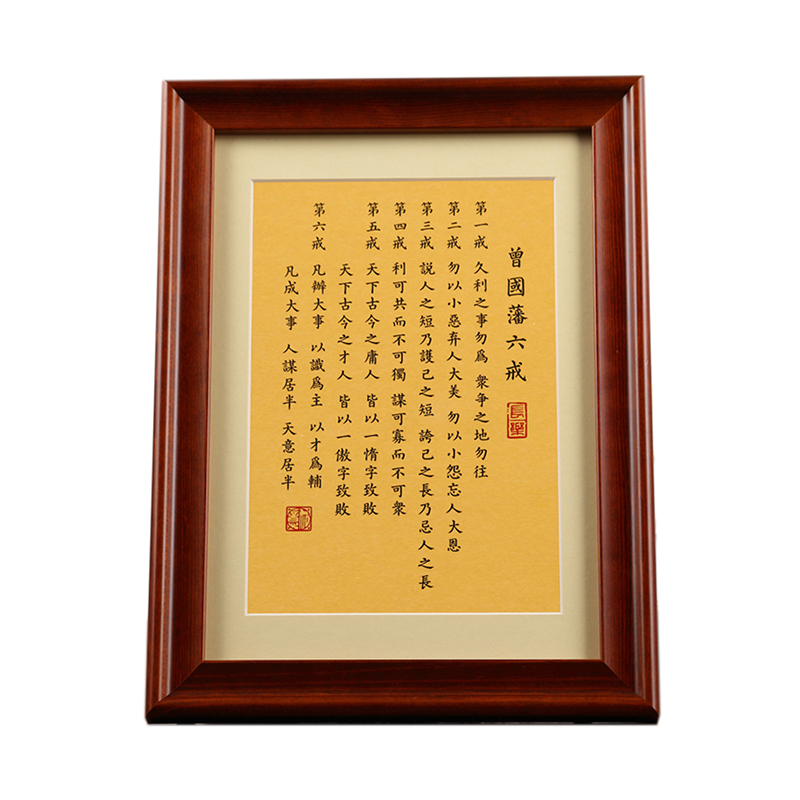 曾國藩六戒
第一戒 久利之事勿爲 衆争之地勿往
第二戒 勿以小惡弃人大美 勿以小怨忘人大恩
第三戒 説人之短乃護己之短 誇己之長乃忌人之長
第四戒 利可共而不可獨 謀可寡而不可衆
第五戒 天下古今之庸人 皆以一惰字致敗
天下古今之才人 皆以一傲字致敗
第六戒 凡辦大事 以識爲主 以才爲輔
凡成大事 人謀居半 天意居半